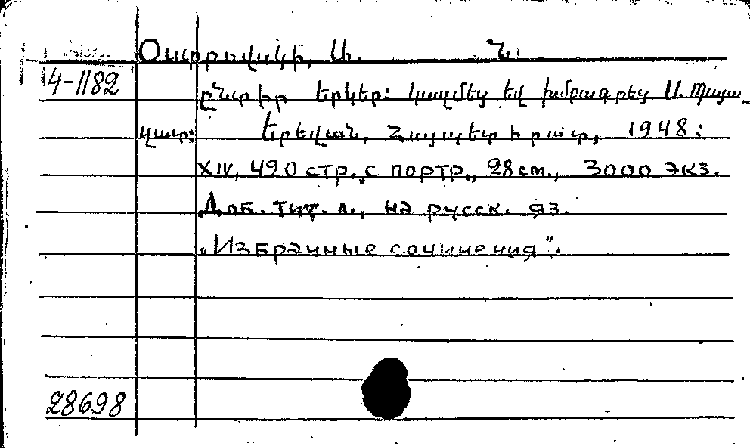 Օստրովսկի, Ա. Ն.
4-1182
Ընտիր երկեր: Կազմեց եվ խմբագրեց Ս.
Երեվան, Հայպետհրատ, 1948:
XIV, 490 стр., с портр., 28 см., 3000 экз.
Доб. тит. л., на русск. яз.
„Избранные сочинения".
28698